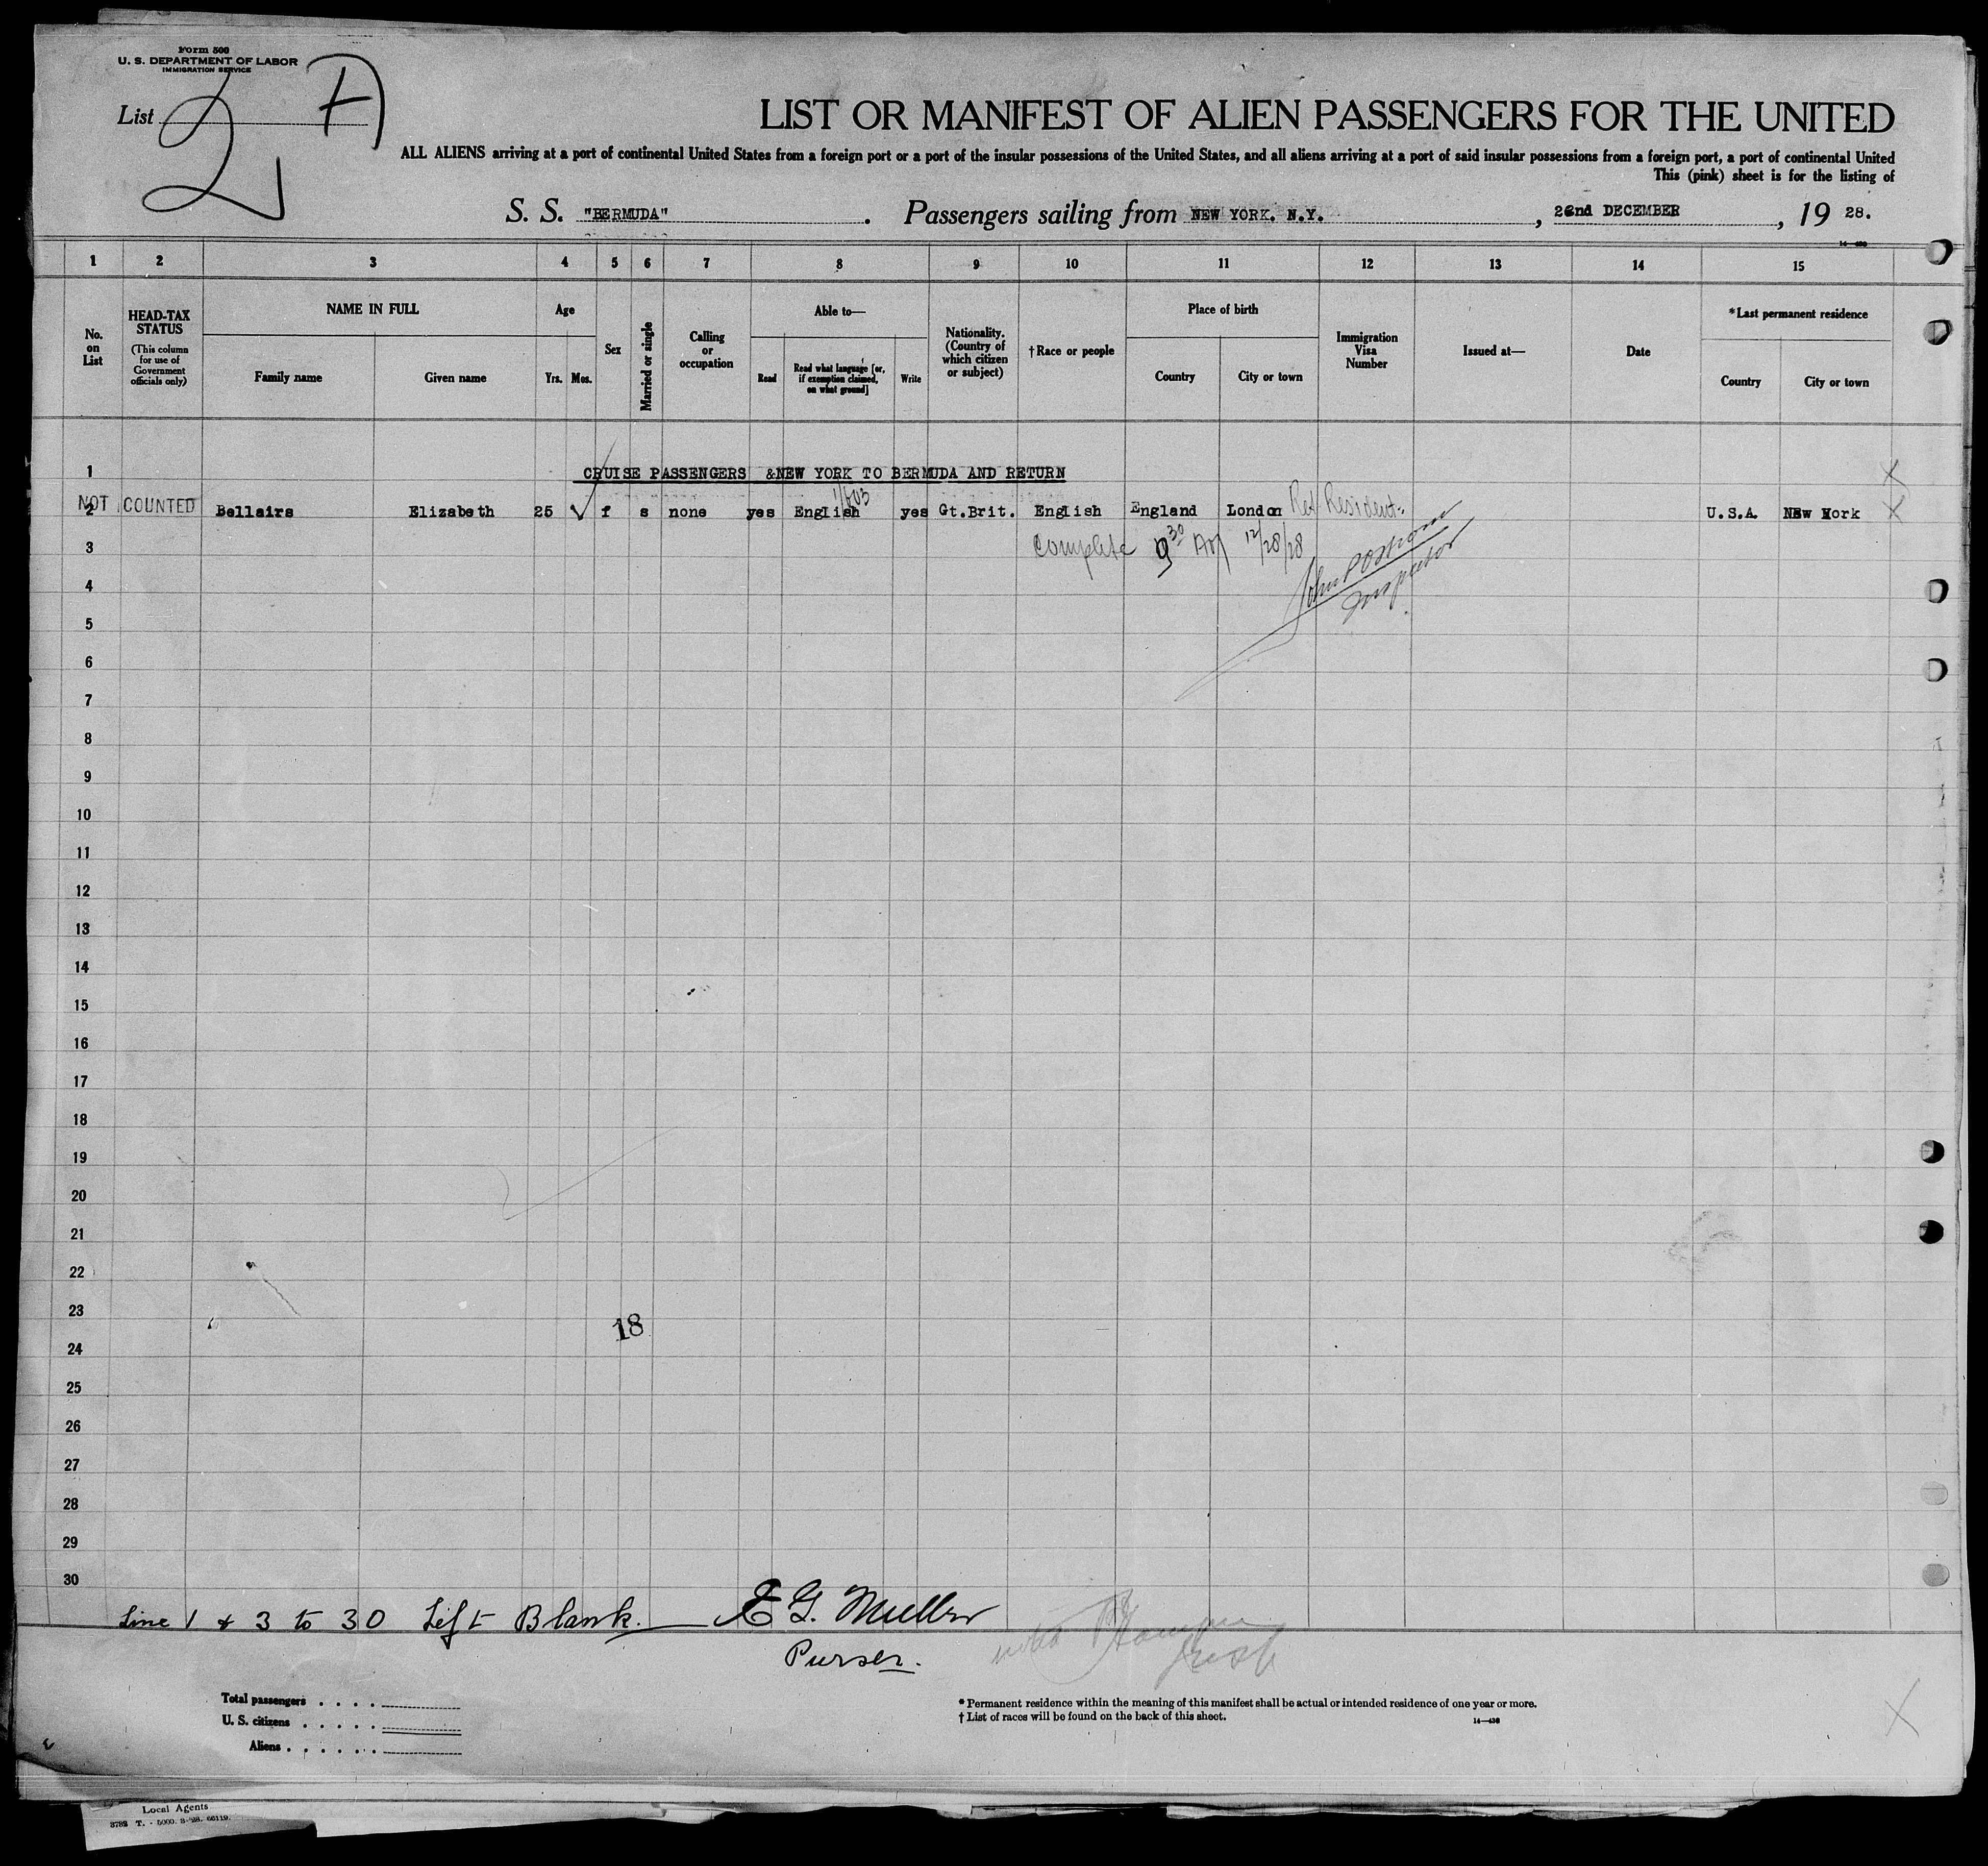 Form 500
U. S. DEPARTMENT OF LABOR
IMMIGRATION SERVICE
List 2 A
LIST OR MANIFEST OF ALIEN PASSENGERS FOR THE UNITED
ALL ALIENS arriving at a port of continental United States from a foreign port or a port of the insular possessions of the United States, and all aliens arriving at a port of said insular possessions from a foreign port, a port of continental United
This (pink) sheet is for the listing of
S. S. "BERMUDA". Passengers sailing from NEW YORK. N.Y., 22nd DECEMBER, 19 28.
1 2 3 4 5 6 7 8 9 10 11 12 13 14 15
No. on List
HEAD-TAX STATUS
(This column for use of Government officials only)
NAME IN FULL
Family name Given name
Age
Yrs. Mos.
Sex
Married or single
Calling or occupation
Able to—
Read
Read what language [or, if exemption claimed, on what ground]
Write
Nationality. (Country of which citizen or subject)
†Race or people
Place of birth
Country City or town
Immigration Visa Number
Issued at—
Date
*Last permanent residence
Country City or town
1 CRUISE PASSENGERS &NEW YORK TO BERMUDA AND RETURN X
2 NOT COUNTED Bellairs Elizabeth 25 f s none yes English yes Gt.Brit. English England London Ret Resident U.S.A. New York X
3 Complete 9 30 AM 12/28/28
4 Inspector
5
6
7
8
9
10
11
12
13
14
15
16
17
18
19
20
21
22
23
18
24
25
26
27
28
29
30
Line 1 & 3 to 30 Left Blank. E G. Muller
Purser.
Total passengers . . . .
U. S. citizens . . . . .
Aliens . . . . . .
* Permanent residence within the meaning of this manifest shall be actual or intended residence of one year or more.
† List of races will be found on the back of this sheet.
14—430
X
Local Agents
3782 T. - 5000. 3-28. 66119.